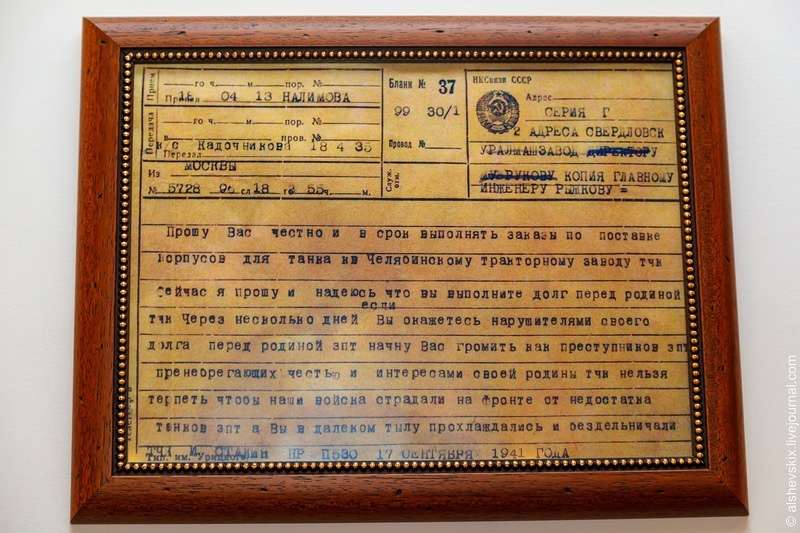 Прием
го ч. м. пор. №
Принял 18 04 13 НАЛИМОВА
Передача
го ч. м. пор. №
в проз. №
к с Кадочникова 18 4 35
Передал
Из МОСКВЫ
№ 5728 96 сл 18 го 55 ч. м.
Бланк № 37
99 30/1
Провод №
Служ. отм.
НКСвязи СССР
Адрес
СЕРИЯ Г
2 АДРЕСА СВЕРДЛОВСК
УРАЛМАШЗАВОД ДИРЕКТОРУ
КОПИЯ ГЛАВНОМУ
ИНЖЕНЕРУ РЫЖКОВУ =
Прошу Вас честно и в срок выполнять заказы по поставке
корпусов для танка кв Челябинскому тракторному заводу тчк
Сейчас я прошу и надеюсь что вы выполните долг перед родиной
если
тчк Через несколько дней Вы окажетесь нарушителями своего
долга перед родиной зпт начну Вас громить как преступников зпт
пренебрегающих честью и интересами своей родины тчк нельзя
терпеть чтобы наши войска страдали на фронте от недостатка
танков зпт а Вы в далеком тылу прохлаждались и бездельничали
тчк И. СТАЛИН НР П530 17 СЕНТЯБРЯ 1941 ГОДА
Тип. им. Урицкого
© alshevskix.livejournal.com